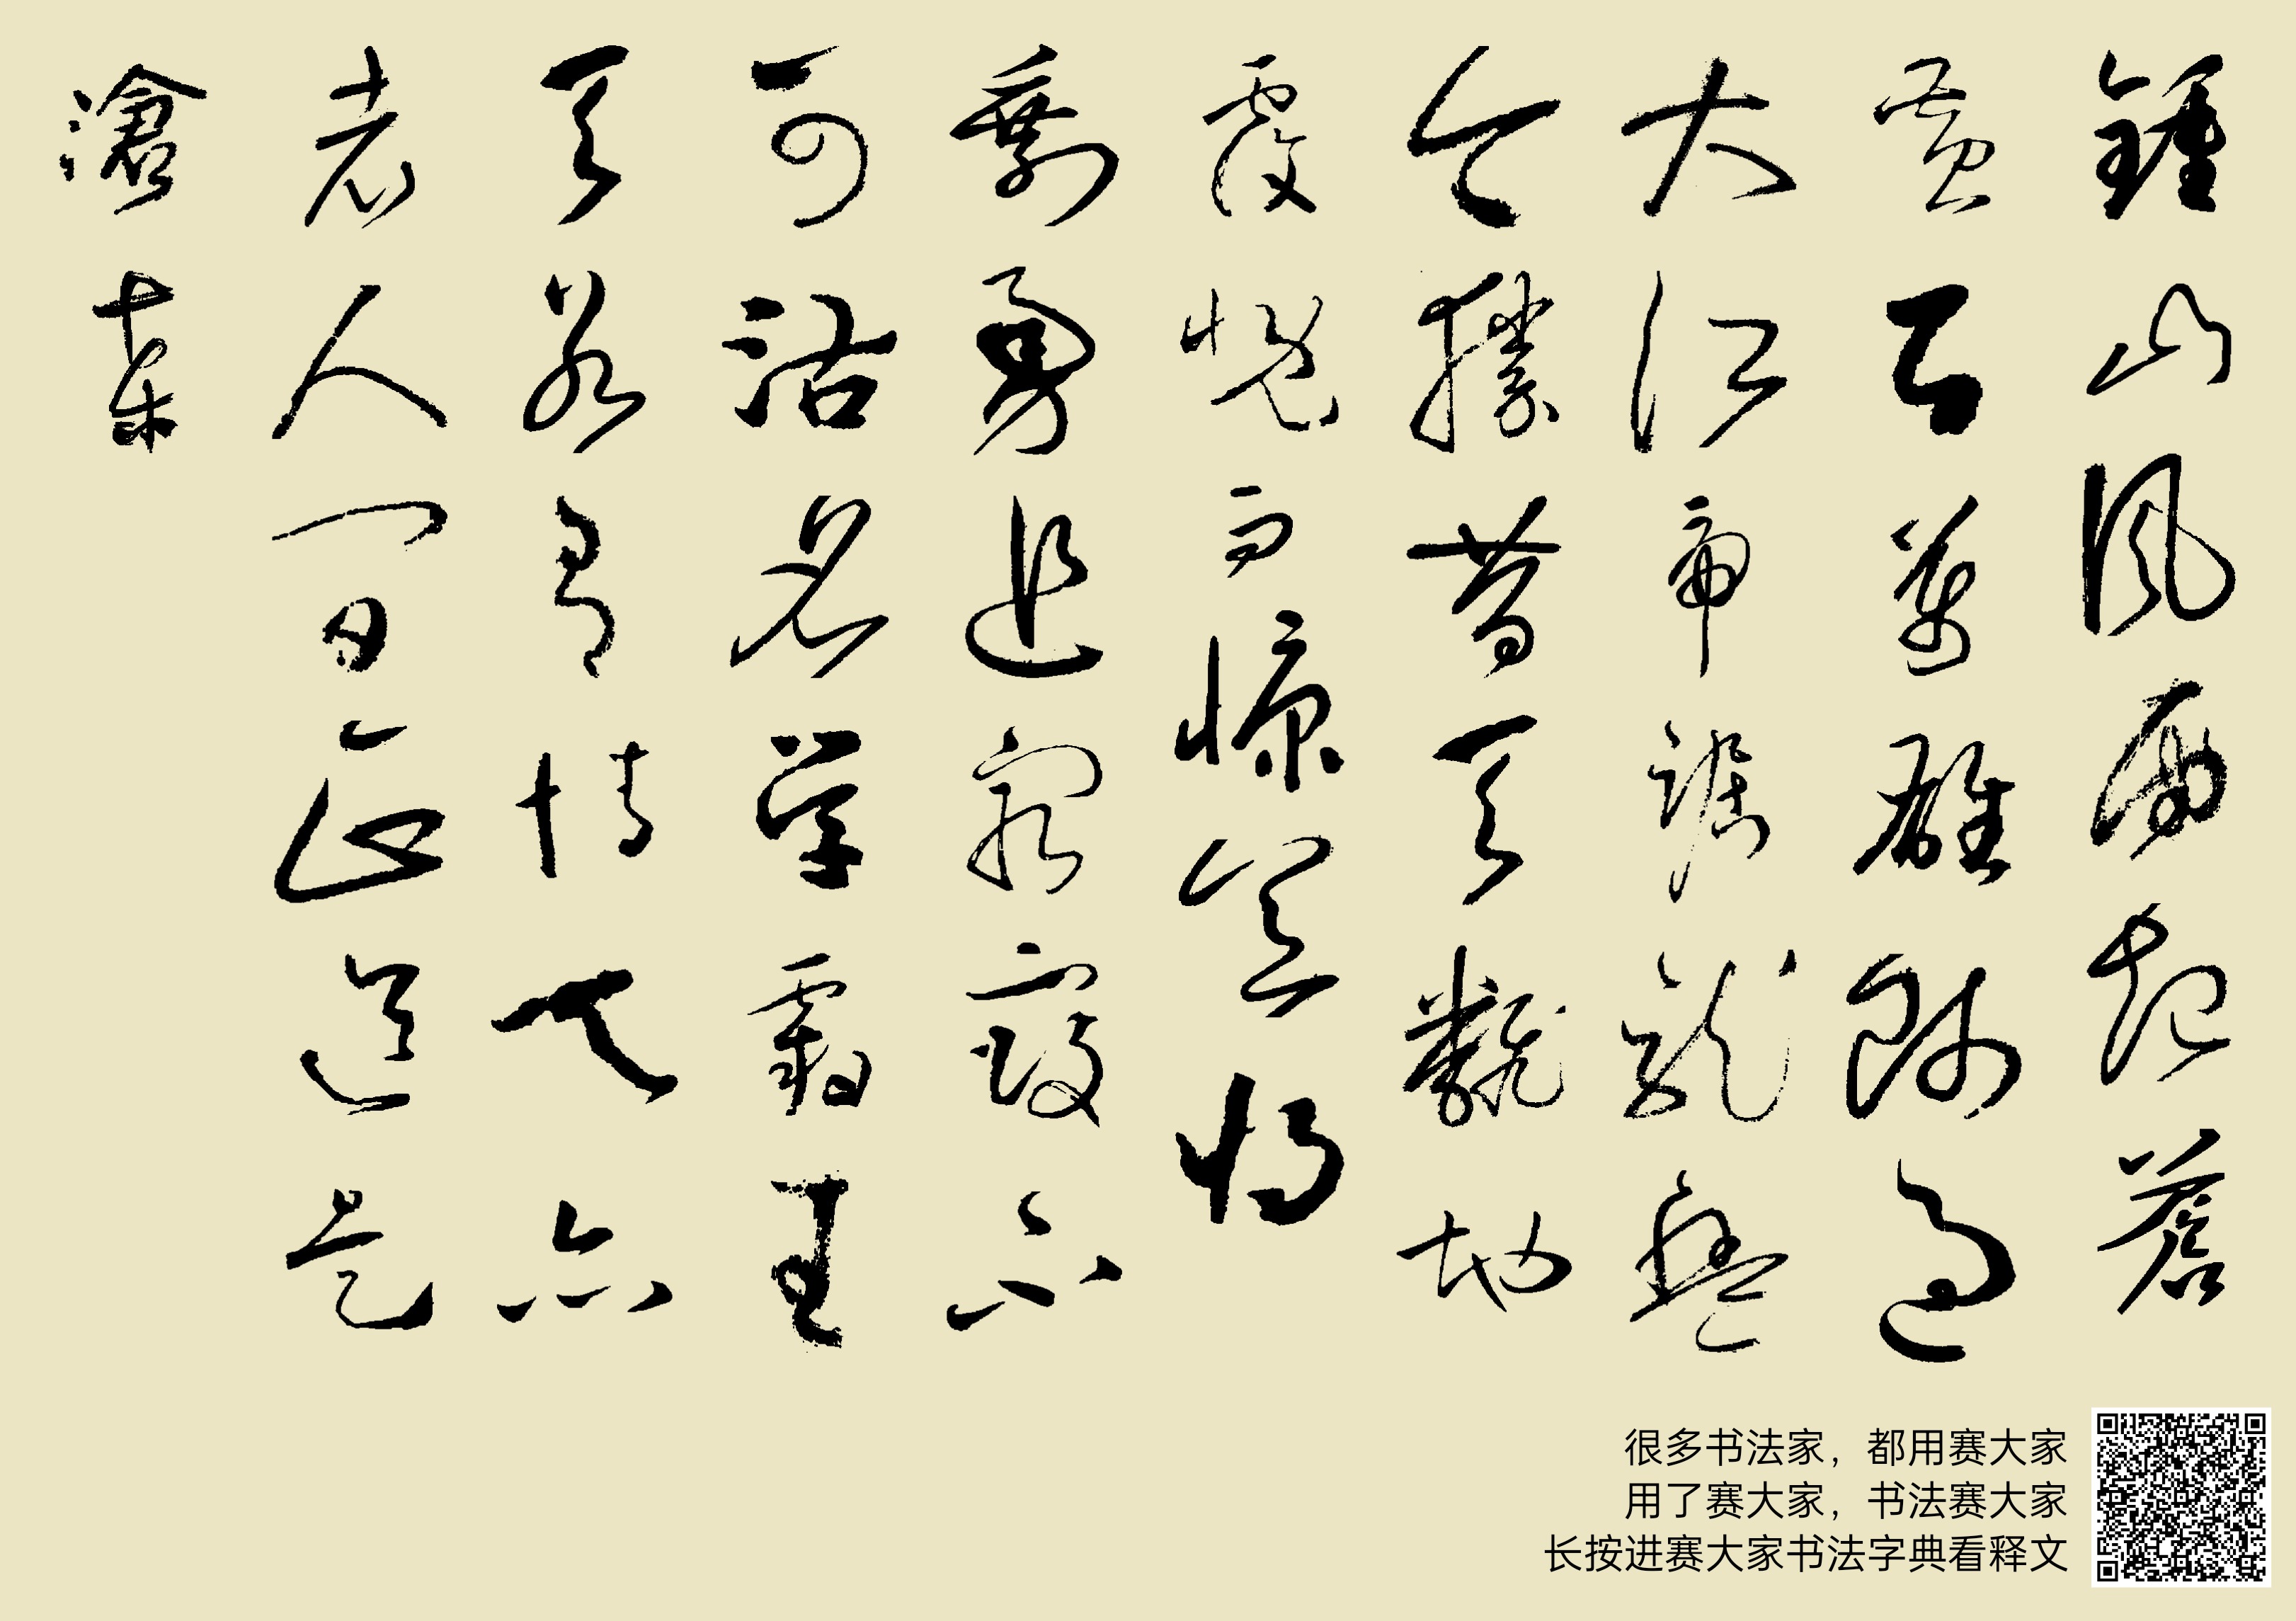 鍾山風雨起蒼
黃百萬雄師過
大江虎踞龍盤
今勝昔天翻地
覆慨而慷宜將
剩勇追窮寇不
可沽名學霸王
天若有情天亦
老人間正道是
滄桑
很多书法家，都用赛大家
用了赛大家，书法赛大家
长按进赛大家书法字典看释文